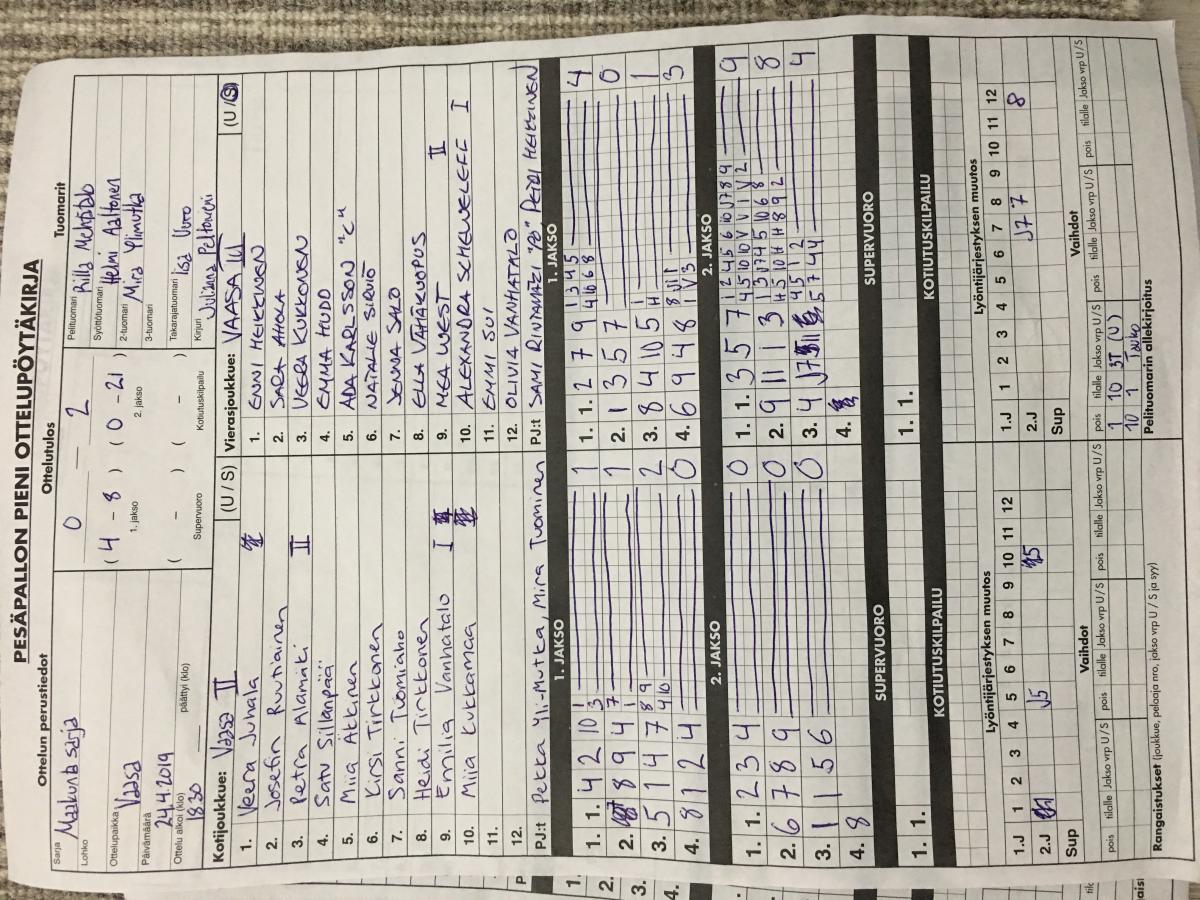 PESÄPALLON PIENI OTTELUPÖYTÄKIRJA
Ottelun perustiedot
Sarja Maakuntasarja
Lohko
Ottelupaikka Vaasa
Päivämäärä 24.4.2019
Ottelu alkoi (klo) 18.30 päättyi (klo)
Ottelutulos
0 — 2
( 4 - 8 ) ( 0 - 21 )
1. jakso 2. jakso
( - ) ( - )
Supervuoro Kotiutuskilpailu
Tuomarit
Pelituomari
Syöttötuomari Helmi Aaltonen
2-tuomari Mira Ylimutka
3-tuomari
Takarajatuomari Iisa
Kirjuri Juliana Peltoniemi
Kotijoukkue: Vaasa II (U / S)
1. Veera Juhala
2. Josefin Ruutiainen
3. Petra Alamäki II
4. Satu Sillanpää
5. Miia Äkkinen
6. Kirsi Tirkkonen
7. Sanni Tuomiaho
8. Heidi Tirkkonen
9. Emilia Vanhatalo I
10. Miia Kukkamaa
11.
12.
PJ:t Pekka Yli-Mutka, Mira Tuominen
Vierasjoukkue: VAASA III (U / S)
1. ENNI HEIKKINEN
2. SARA AHOLA
3. VEERA KUKKONEN
4. EMMA HUDD
5. ADA KARLSSON "C"
6. NATALIE SIRVIÖ
7. JENNA SALO
8. ELLA VÄHÄKUOPUS
9. MEA WEST II
10. ALEXANDRA SCHEWELEFF I
11. EMMI SUI
12. OLIVIA VANHATALO
PJ:t SAMI RINTAMÄKI PETRI HEIKKINEN
1. JAKSO
1. 1. 4 2 10 1 3 1
2. 8 9 4 7 1 1
3. 5 1 4 7 8 9 4 10 2
4. 8 1 2 4 0
2. JAKSO
1. 1. 2 3 4 0
2. 6 7 8 9 0
3. 1 1 5 6 0
4. 8
SUPERVUORO
1. 1.
KOTIUTUSKILPAILU
1. JAKSO
1. 1. 2 7 9 1 3 4 5 4 10 6 8 4
2. 1 3 5 7 0
3. 8 4 10 5 1 H 1
4. 6 9 4 8 3
2. JAKSO
1. 1. 3 5 7 9
2. 9 11 1 3 8
3. 4 J7 4
4.
SUPERVUORO
1. 1.
KOTIUTUSKILPAILU
Lyöntijärjestyksen muutos
1 2 3 4 5 6 7 8 9 10 11 12
1.J
2.J J5
Sup
Vaihdot
pois tilalle Jakso vrp U / S pois tilalle Jakso vrp U / S pois tilalle Jakso vrp U / S
Rangaistukset (joukkue, pelaaja nro, jakso vrp U / S ja syy)
Lyöntijärjestyksen muutos
1 2 3 4 5 6 7 8 9 10 11 12
1.J 8
2.J J7 7
Sup
Vaihdot
pois tilalle Jakso vrp U / S pois tilalle Jakso vrp U / S pois tilalle Jakso vrp U / S
1 10 3T (U)
10 1 Tauko
Pelituomarin allekirjoitus